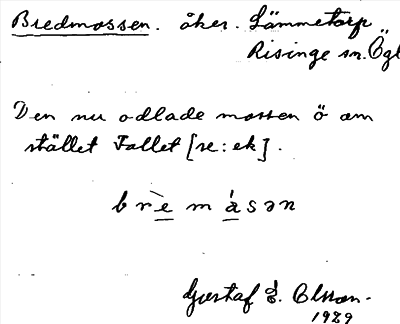 Bredmossen. åker. Lämmetorp
Risinge sn. Ögl
Den nu odlade mossen ö om
stället Fallet [se: ek].
brèmásən
Gustaf E. Olsson.
1929